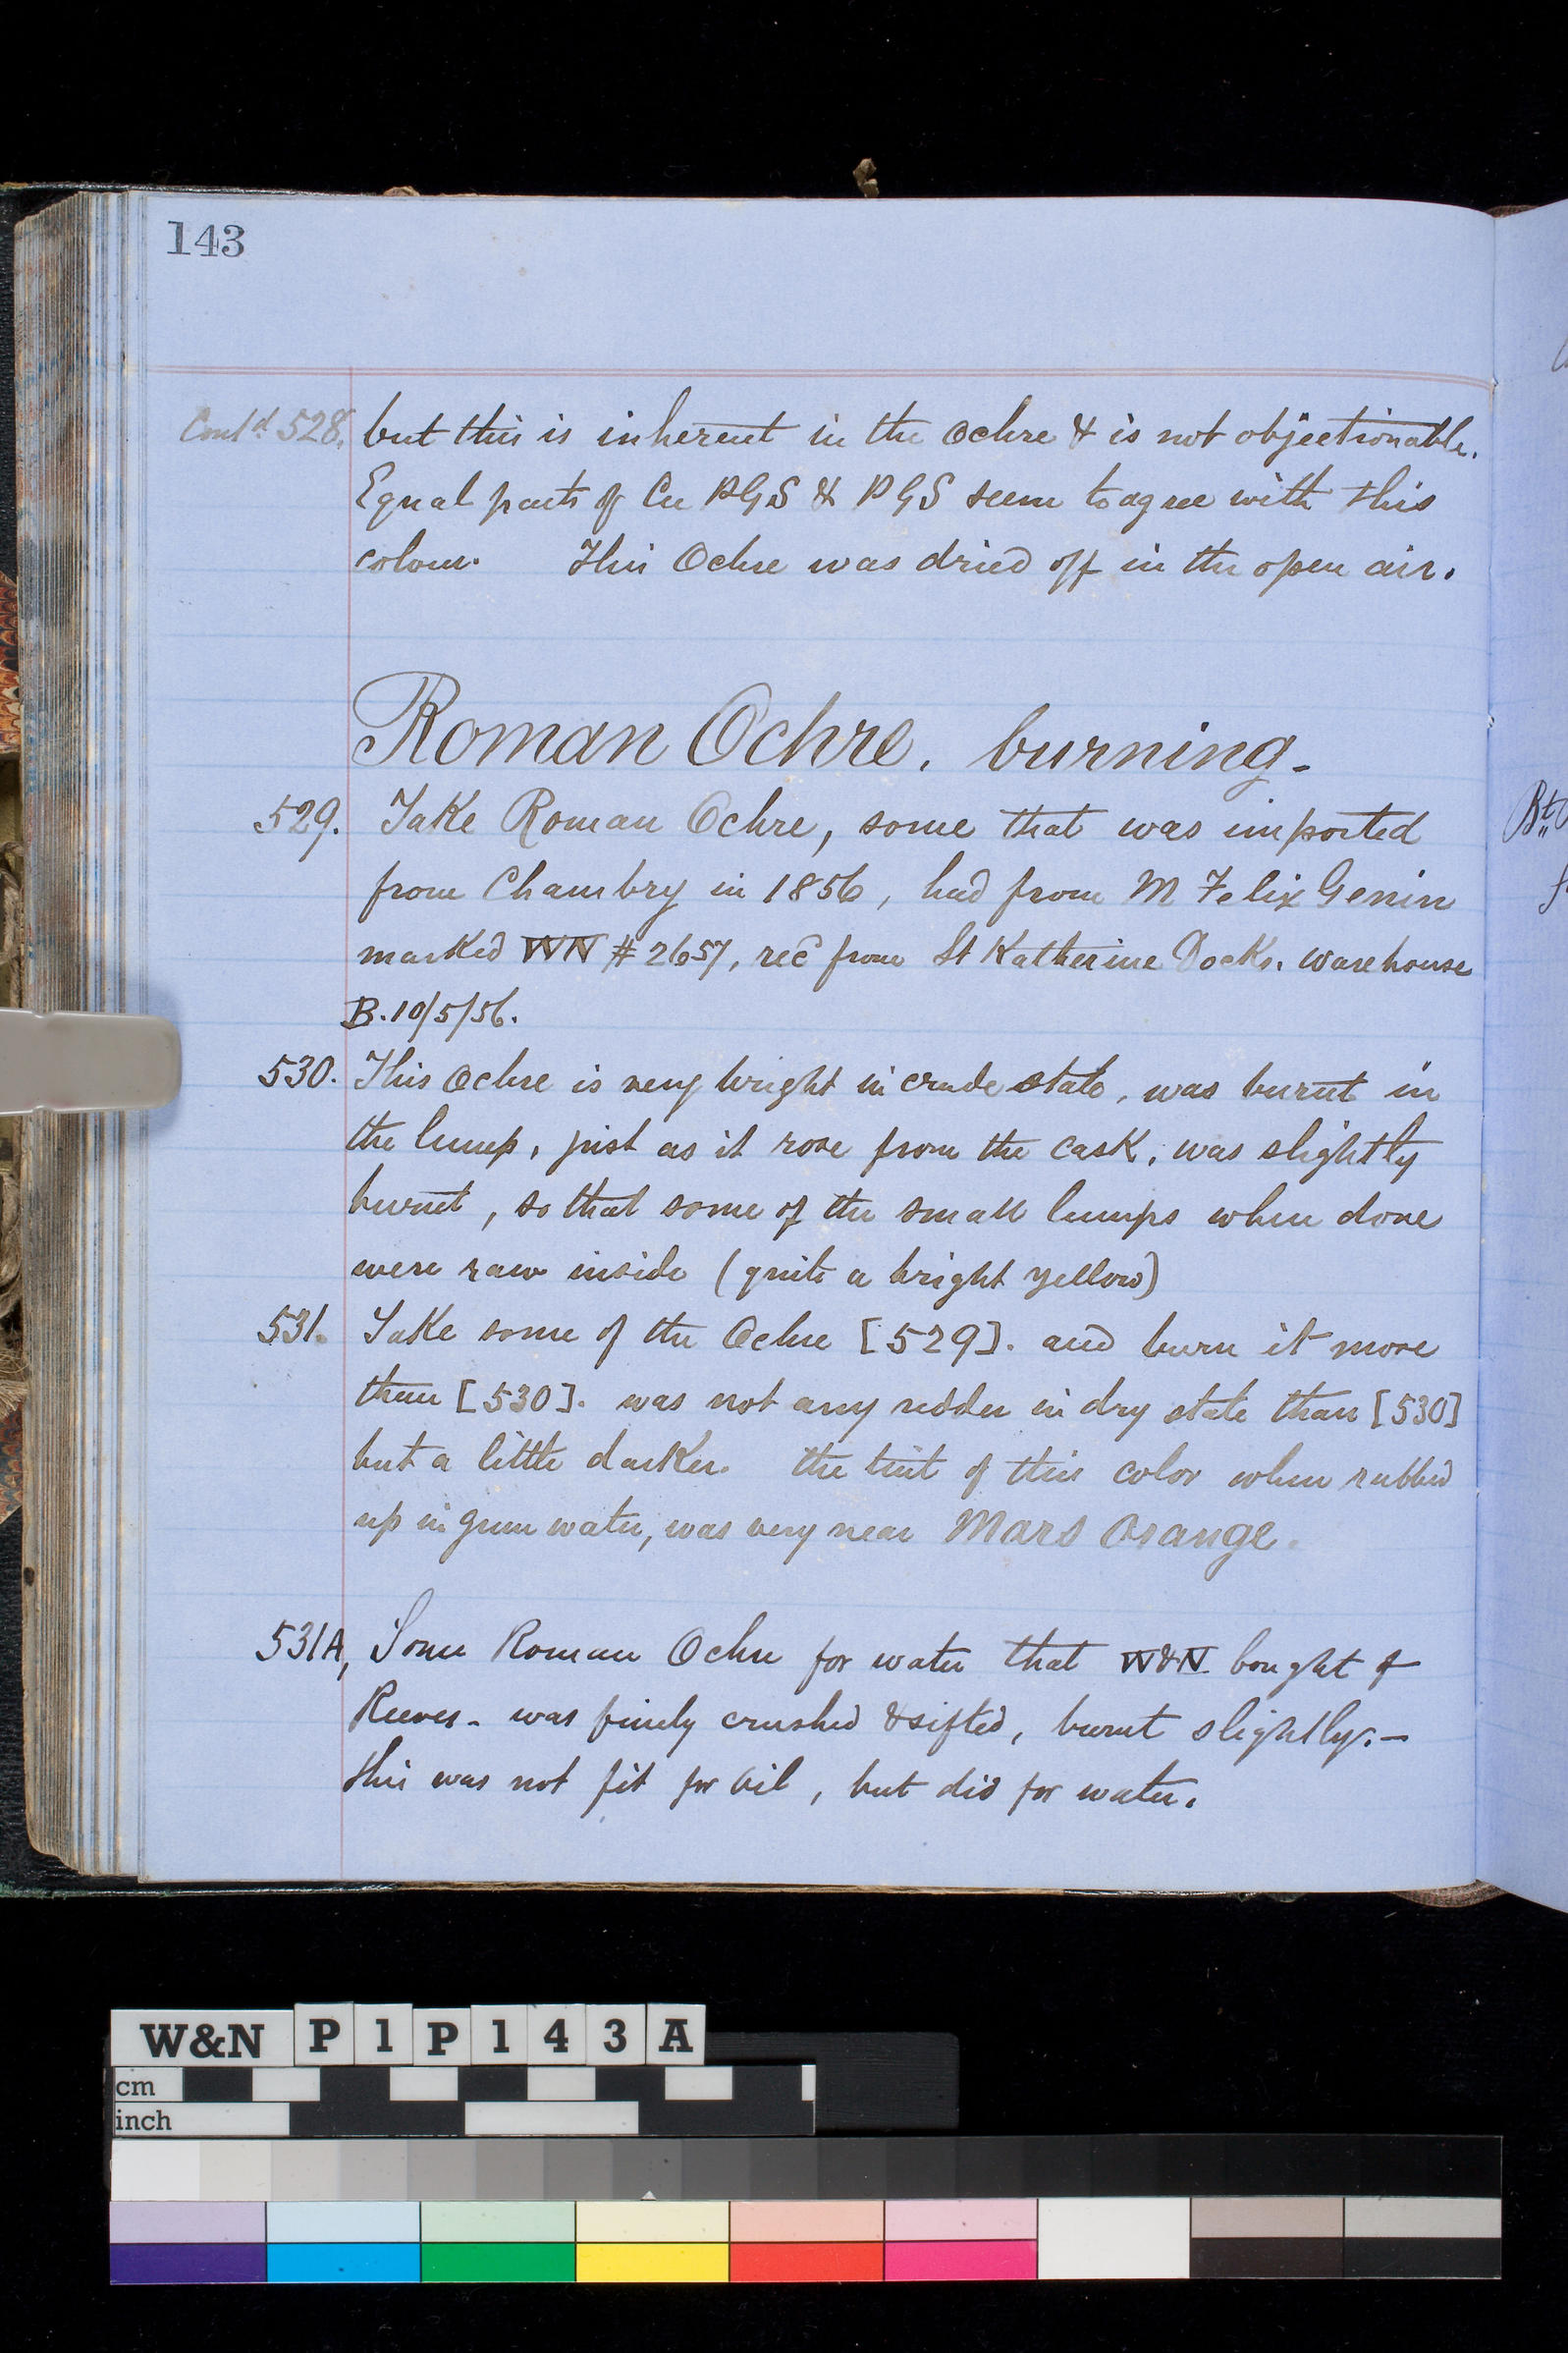 143
Contd. 528. but this is inherent in the Ochre & is not objectionable.
Equal parts of Cu PGS & PGS seem to agree with this
colour. This Ochre was dried off in the open air.
Roman Ochre. burning-
529. Take Roman Ochre, some that was imported
from Chambry in 1856, had from M Felix Genin
marked WN # 2657, rec from St Katherine Docks. warehouse
B. 10/5/56.
530. This Ochre is very bright in crude state, was burnt in
the lump, just as it rose from the cask, was slightly
burnt, so that some of the small lumps when done
were raw inside (quite a bright yellow)
531. Take some of the Ochre [529]. and burn it more
than [530]. was not any redder in dry state than [530]
but a little darker. the tint of this color when rubbed
up in gum water, was very near Mars Orange.
531A, Some Roman Ochre for water that W&N bought of
Reeves - was finely crushed & sifted, burnt slightly. -
this was not fit for Oil, but did for water.
W&N P1P143A
cm
inch